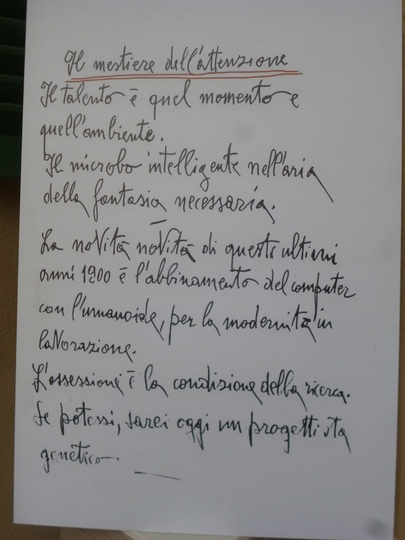 Il mestiere dell'attenzione
Il talento è quel momento e
quell'ambiente.
Il microbo intelligente nell'aria
della fantasia necessaria.
La novità novità di questi ultimi
anni 1900 è l'abbinamento del computer
con l'umanoide, per la modernità in
lavorazione.
L'ossessione è la condizione della ricerca.
Se potessi, sarei oggi un progettista
genetico.